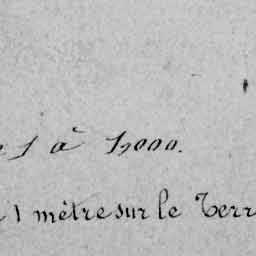 1 à 1,000.
1 mètre sur le Terr